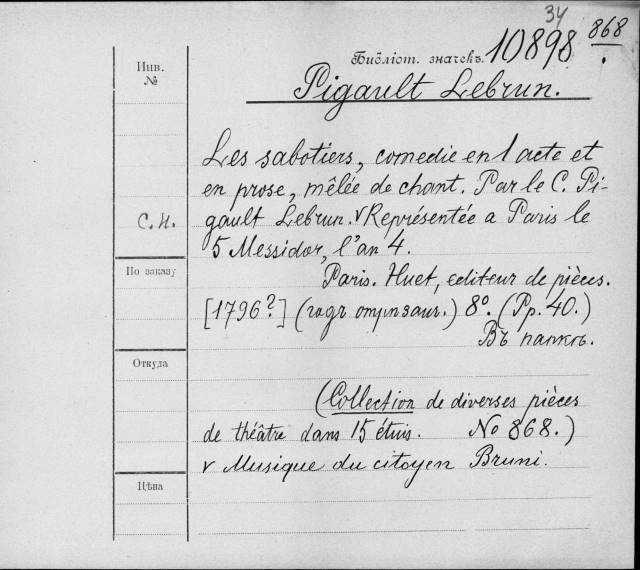 34
868
Библіот. значекъ. 10898
Pigault Lebrun.
Инв.
№
Les sabotiers, comedie en 1 acte et
en prose, mêlée de chant. Par le C. Pi-
C. H. gault Lebrun. v Représentée a Paris le
5 Messidor, l'an 4.
По заказу
Paris. Huet, editeur de pièces.
[1796?] (годъ отрѣзанъ.) 8º. (Pp. 40.)
Въ папкѣ.
Откуда
(Collection de diverses pièces
de théâtre dans 15 étuis. No 868.)
v Musique du citoyen Bruni.
Цѣна